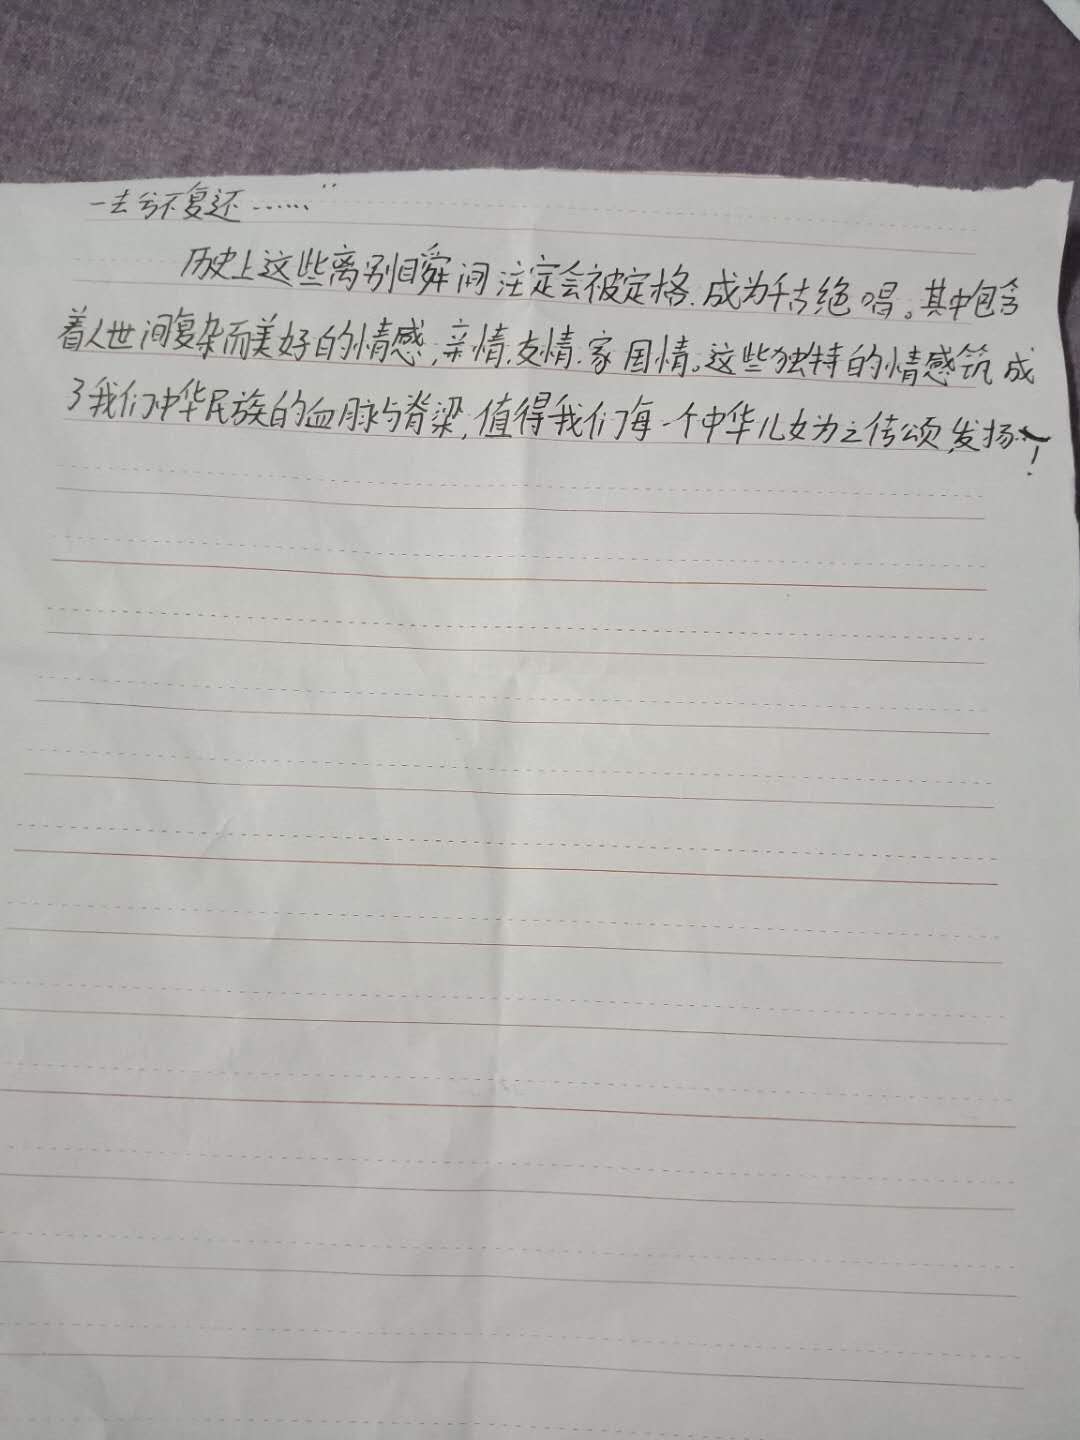 一去兮不复还……”
历史上这些离别瞬间注定会被定格,成为千古绝唱。其中包含
着人世间复杂而美好的情感,亲情,友情,家国情。这些独特的情感筑成
了我们中华民族的血脉与脊梁,值得我们每一个中华儿女为之传颂,发扬!